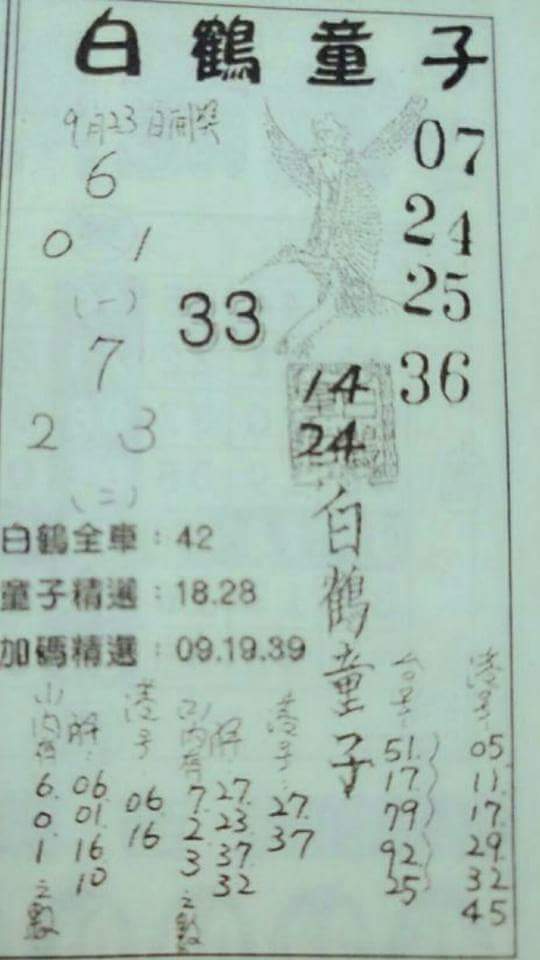 白鶴童子
9月23日開獎
6
0 1
(一)
7
2 3
(二)
33
07
24
25
36
14
24
白鶴童子
白鶴全車：42
童子精選：18.28
加碼精選：09.19.39
(一)內有
6.
0.
1
之數
解：
06
01.
16
10
港号：
06
16
(二)內有
7.
2.
3
之數
解
27.
23.
37.
32
港子：
27.
37
台号：
51.
17.
79.
92.
25
港号：
05
11.
17.
29
32
45